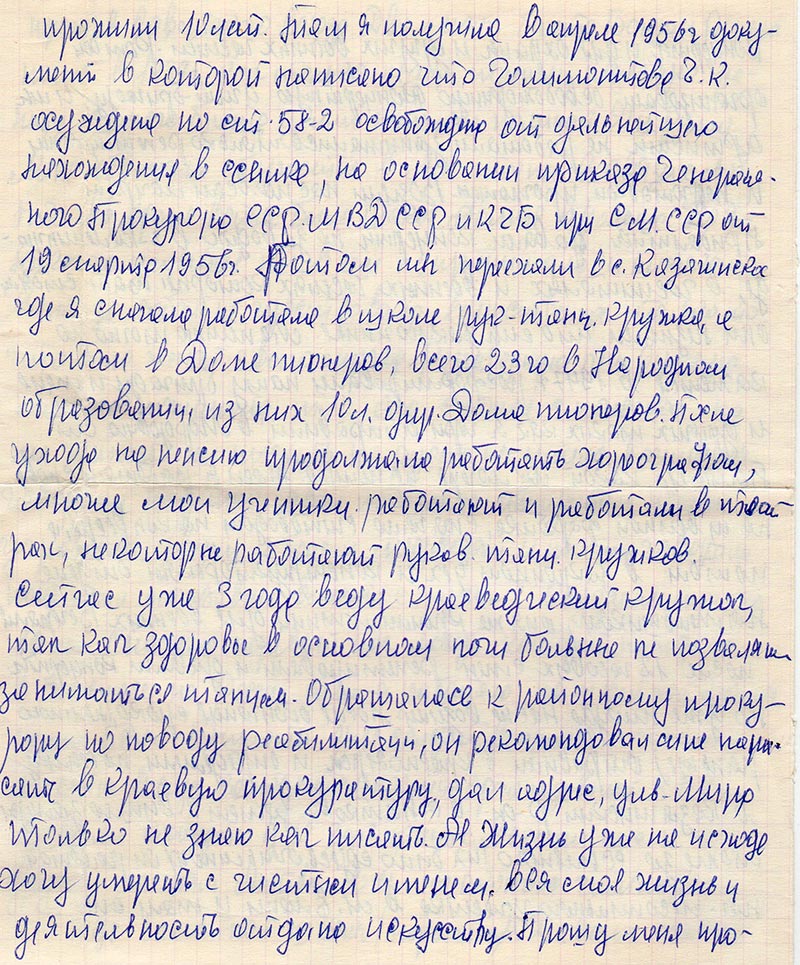 прожили 10 лет. Там я получила в апреле 1956 г доку-
мент в которой написано что Галимонтова Г. К.
осуждена по ст. 58-2 освобождена от дальнейшего
нахождения в ссылке, на основании приказа Генераль-
ного Прокурора СССР. МВД СССР и КГБ при С.М. СССР от
19 марта 1956 г. Потом мы переехали в с. Казачинска
где я сначала работала в школе рук-танц. кружка, а
потом в Доме пионеров, всего 23 го в Народном
образовании, из них 10 л. дир. Дома пионеров. После
ухода на пенсию продолжала работать хореографом,
многие мои ученики работают и работали в театрах
рах, некоторые работают руков. танц. кружков.
Сейчас уже 3 года веду краеведческий кружок,
так как здоровье в основном ноги больные не позволяют
заниматься танцем. Обращалась к районному проку-
рору по поводу реабилитации, он рекомендовал мне напи-
сать в краевую прокуратуру, дал адрес, ул. Мира
только не знаю как писать. А жизнь уже на исходе
хочу умереть с чистым именем. Вся моя жизнь и
деятельность отдана искусству. Прошу меня про-